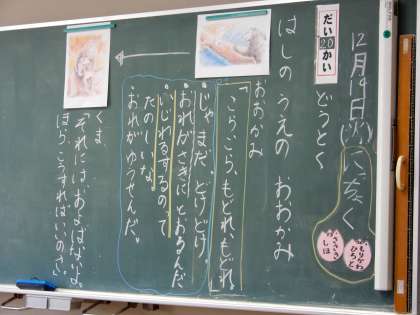 12月14日(火)
にっちょく
もりかわ
ひろと
しほ
だい20かい
どうとく
はしのうえのおおかみ
おおかみ
「こらこら、もどれ、もどれ。
じゃまだ、どけどけ。
おれがさきにとおるんだ。
いじわるするのって
たのしいな。
おれがゆうせんだ。
くま
「それにはおよばないよ。
ほら、こうすればいいのさ。」